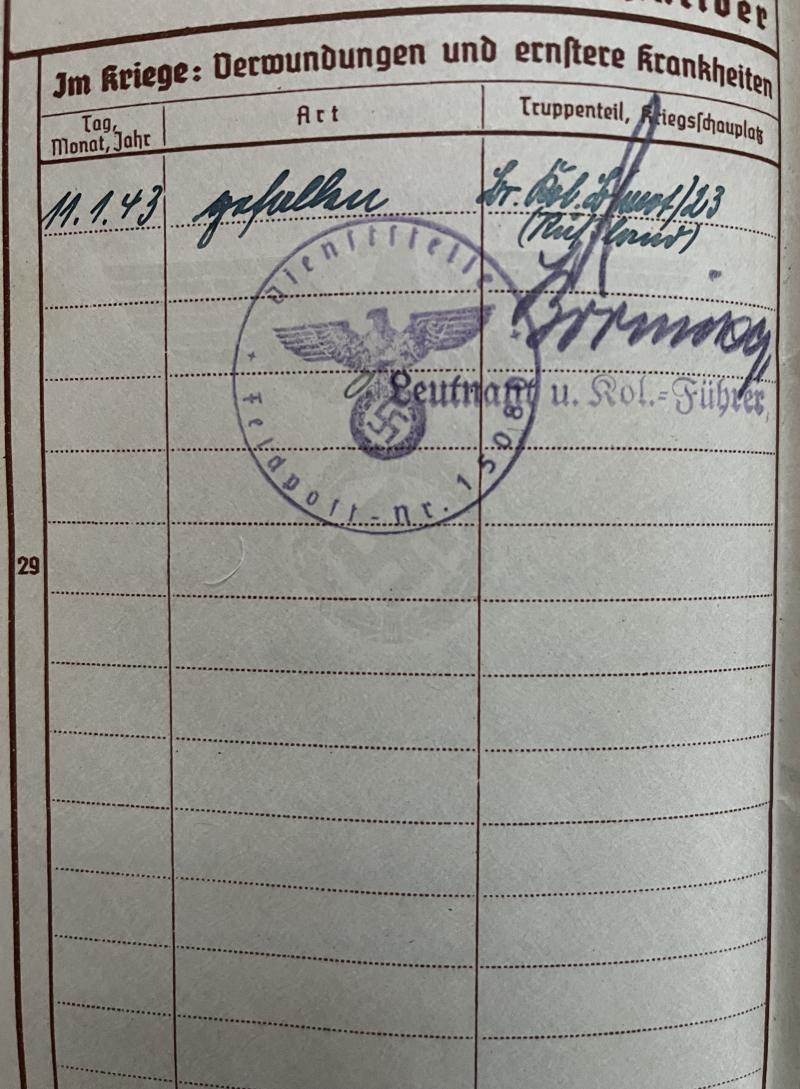 Im Kriege: Verwundungen und ernstere Krankheiten
Tag, Monat, Jahr
Art
Truppenteil, Kriegsschauplatz
11.1.43
gefallen
/23
(Rußland)
Dienststelle
Feldpost-Nr. 1508
Leutnant u. Kol.-Führer
29